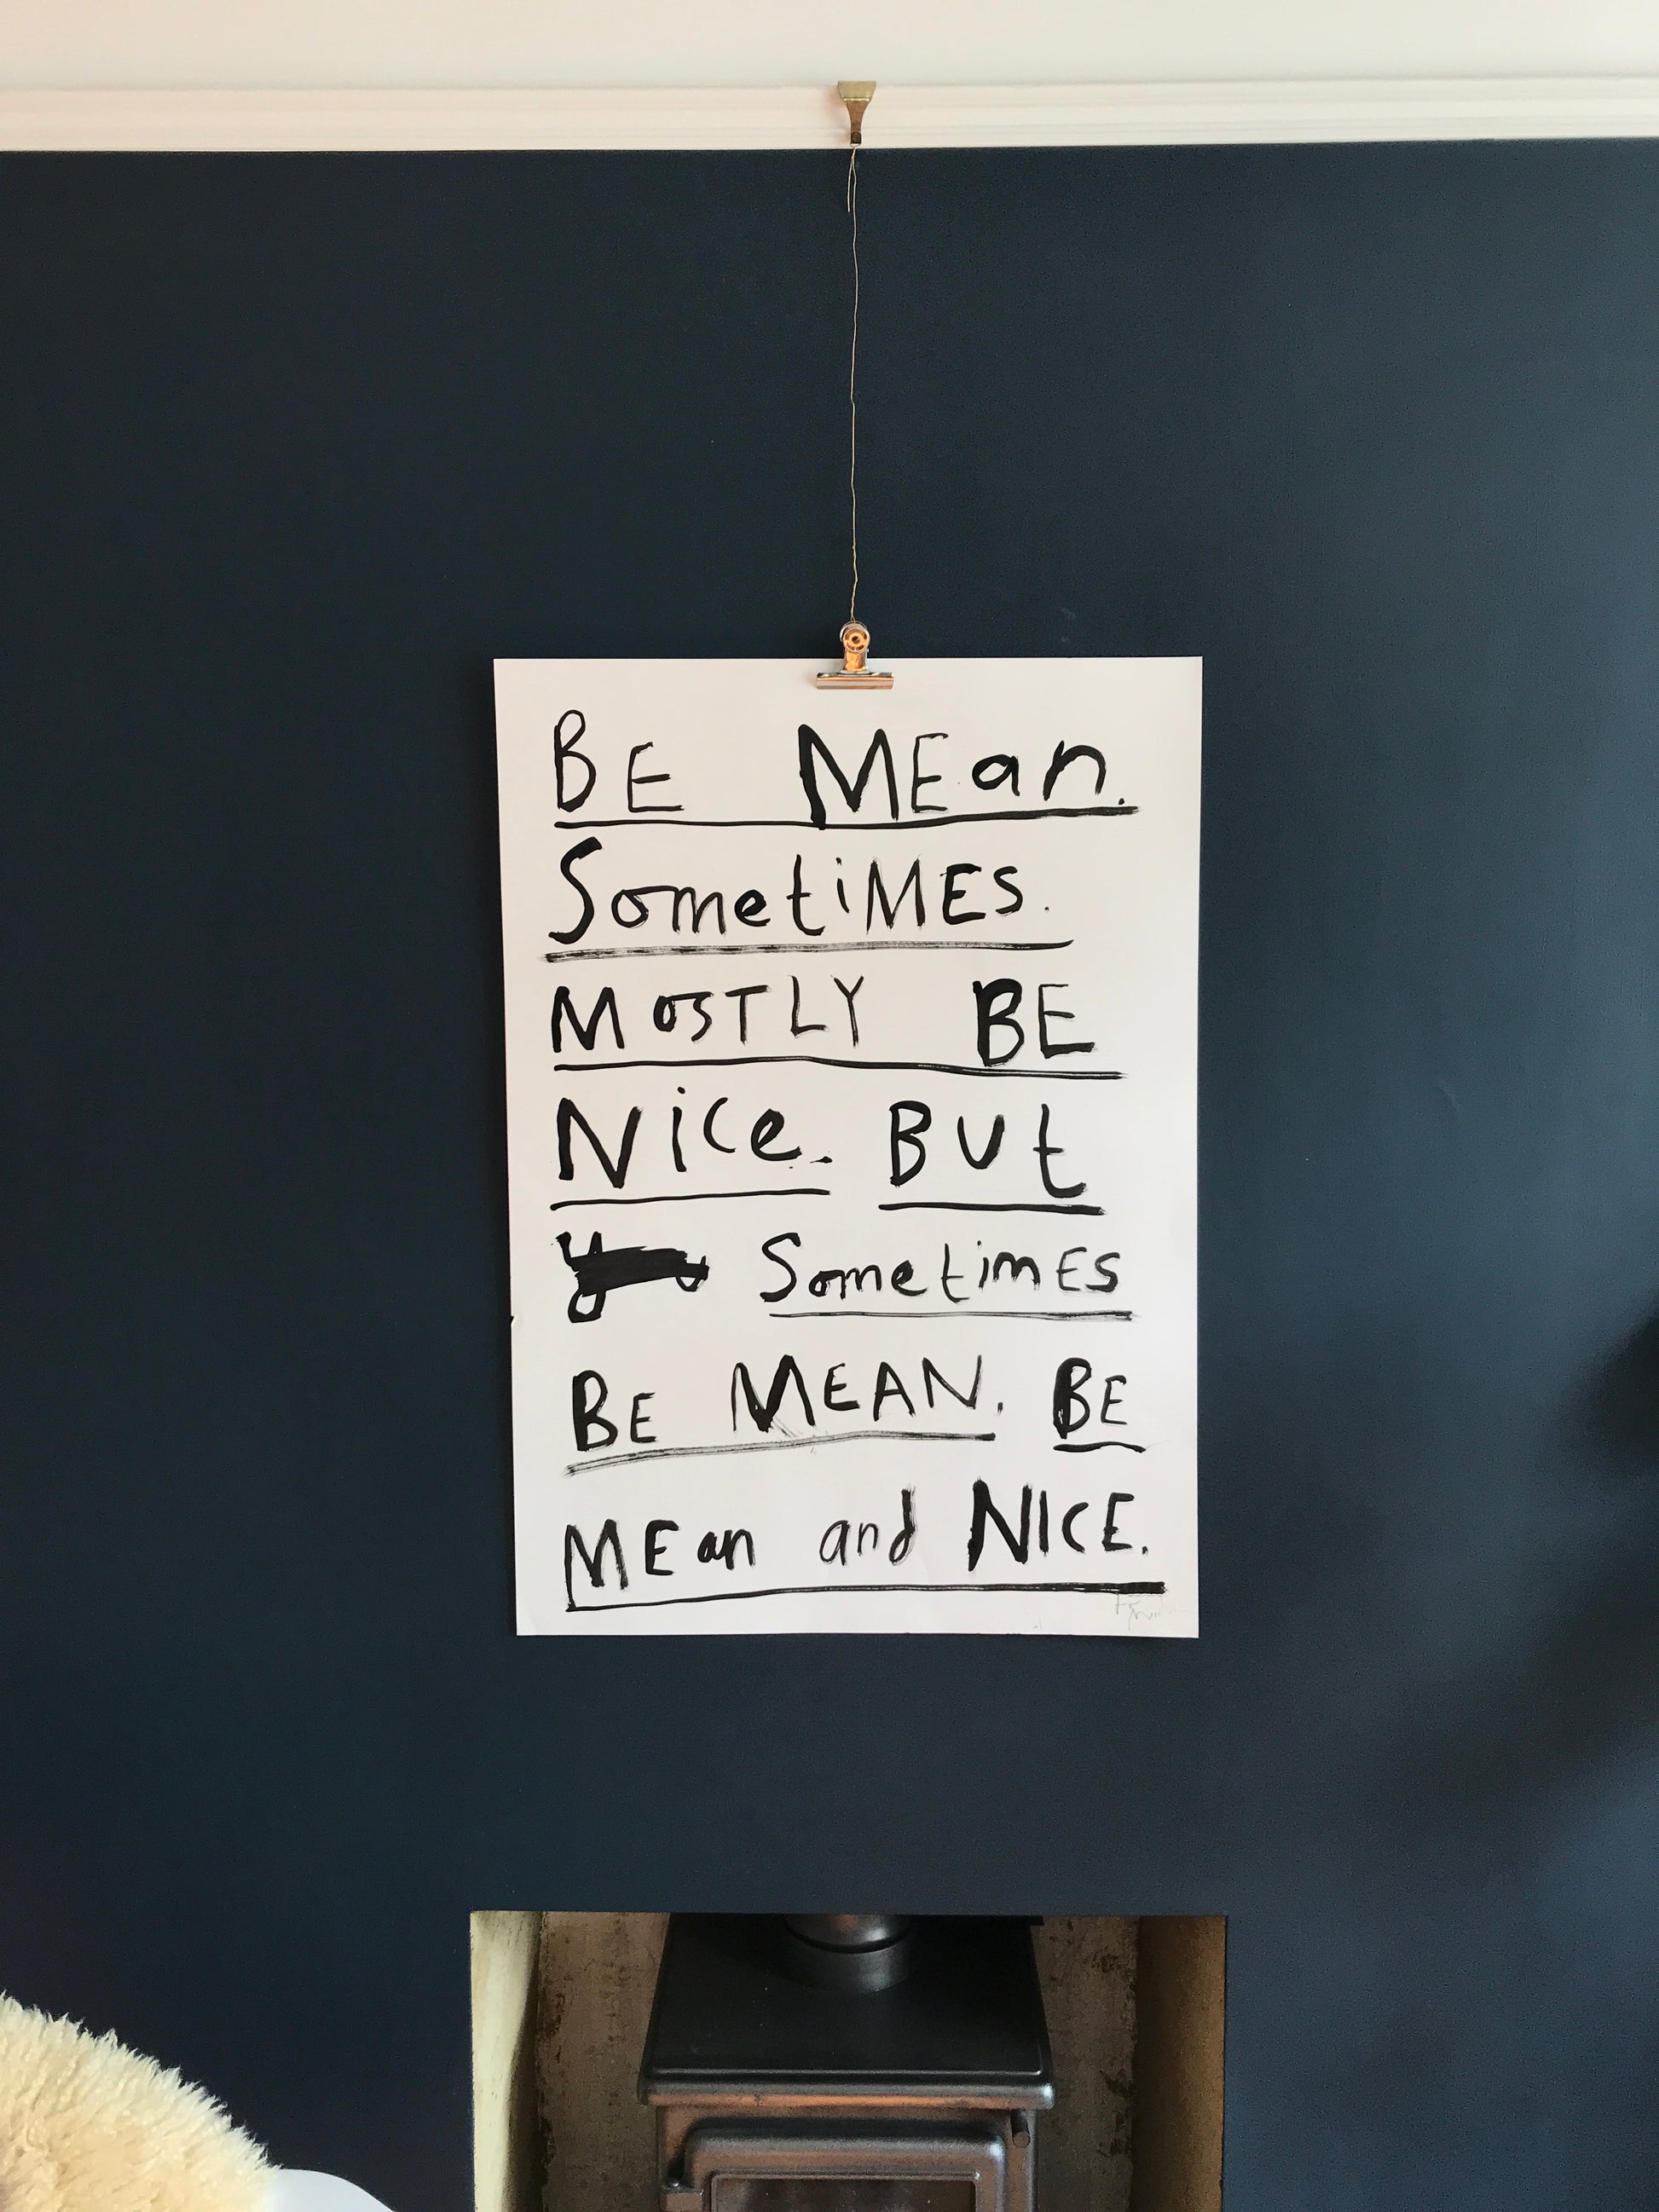 BE MEan.
SometiMES.
MOSTLY BE
Nice. BUt
SometimES
BE MEAN. BE
MEan and NICE.